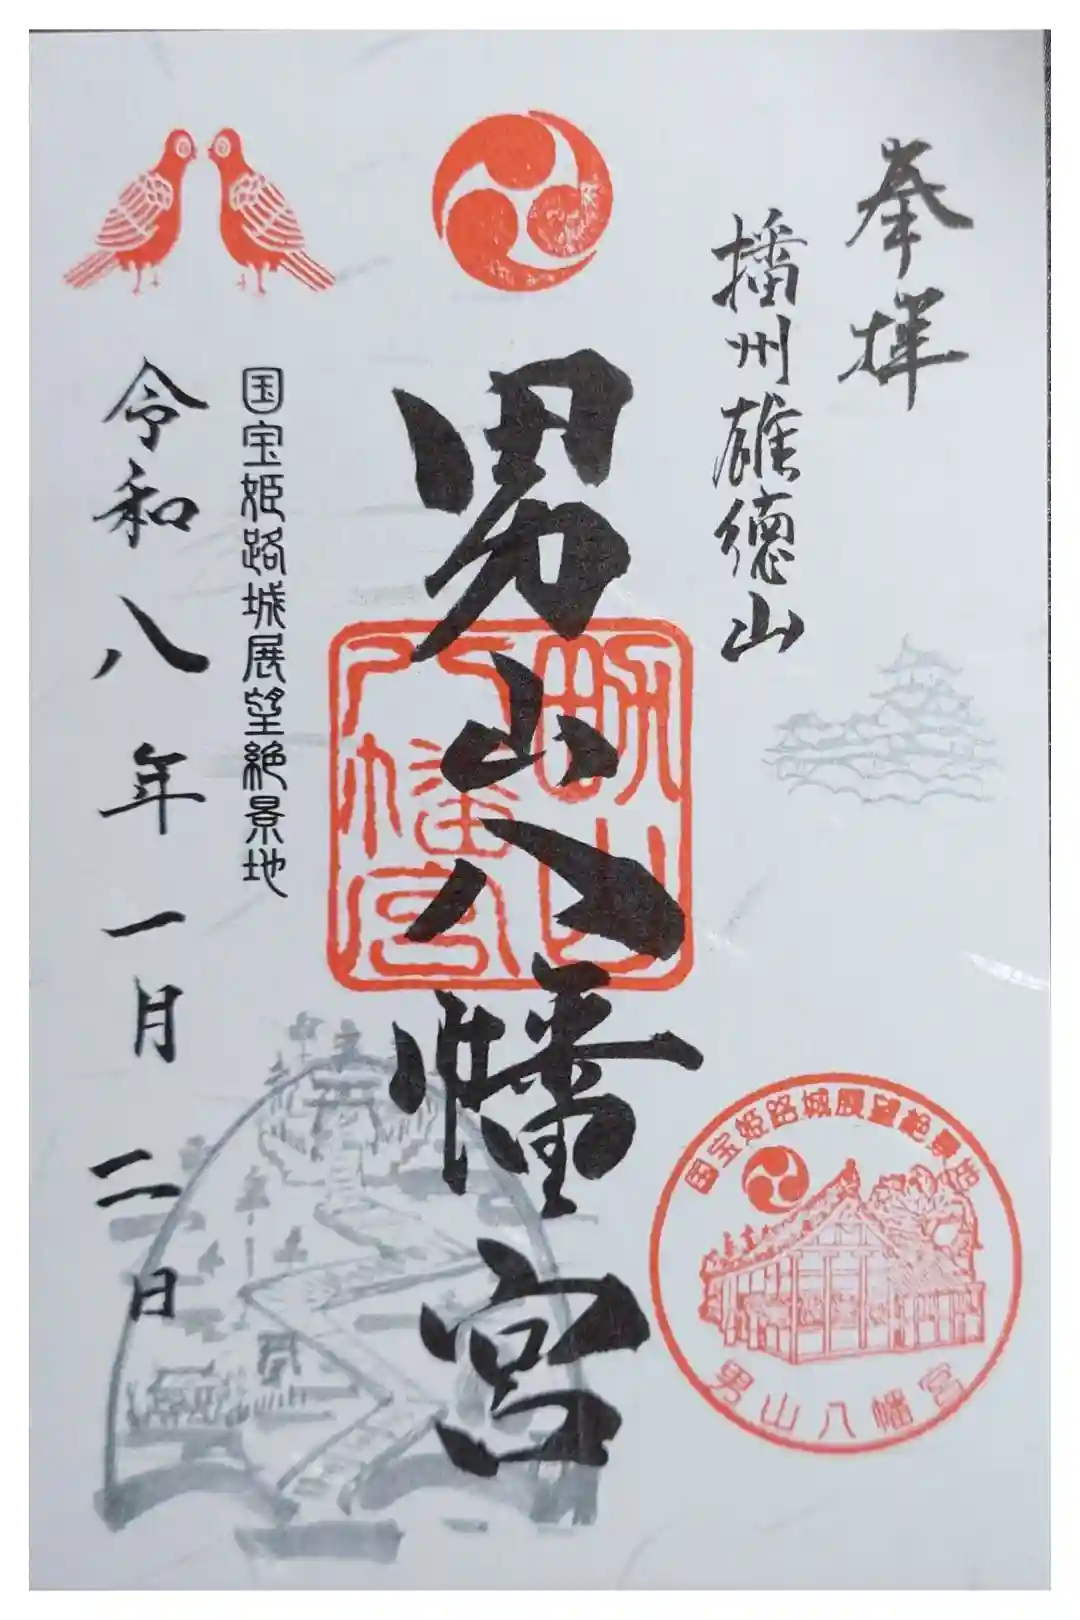 奉拝
播州雄徳山
男山八幡宮
男山八幡宮
国宝姫路城展望絶景地
令和八年一月二日
国宝姫路城展望絶景地
男山八幡宮